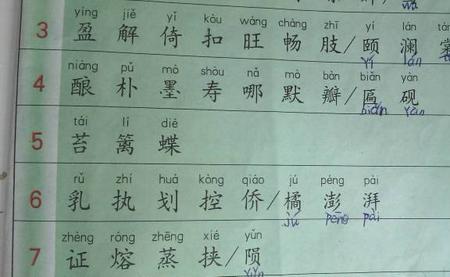 yíng jiě yǐ kòu wàng chàng zhī yí lán
3 盈 解 倚 扣 旺 畅 肢/颐 澜
yí lán
niàng pǔ mò shòu nǎ mò bàn biǎn yàn
4 酿 朴 墨 寿 哪 默 瓣/匾 砚
biǎn yàn
tái lí dié
5 苔 篱 蝶
rǔ zhí huá kòng qiáo jú péng pài
6 乳 执 划 控 侨/橘 澎 湃
jú péng pài
zhèng róng zhēng xié yǔn
7 证 熔 蒸 挟/陨
yǔn